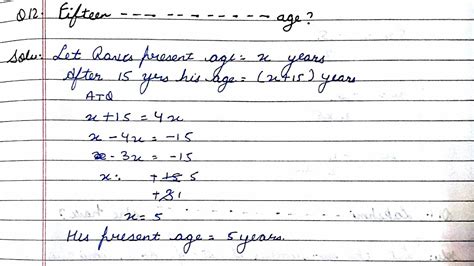 Q12. Fifteen - - - - - - - - - - - age?
Solu: Let Ravi's present age = x years
After 15 yrs his age = (x+15) years
ATQ
x + 15 = 4x
x - 4x = -15
- 3x = -15
x = +15 5
+3 1
x = 5
His present age = 5 years.